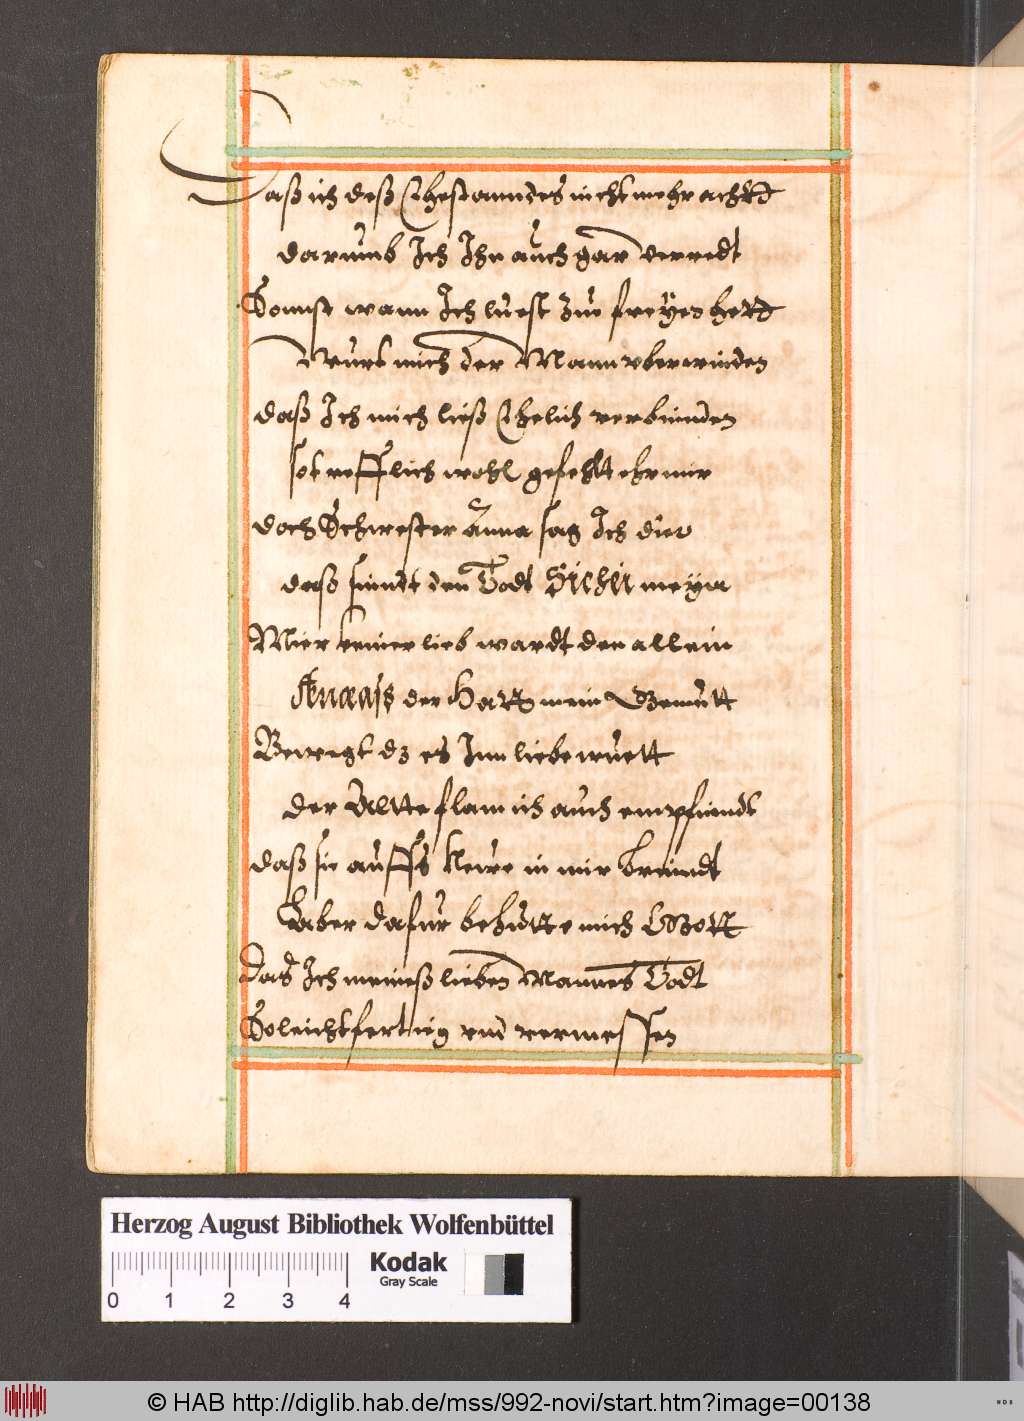 Daß ich deß Ehestanndes nicht mehr achtett
darumb Ich Ihn auch gar verredt
Sonnst wann Ich luest zue freyes hett
Wurt mich der Mann uberwinden
daß Ich mich ließ Ehelich verbinnden
so trefflich wohl gefehlt ehr mir
doch Schwester Anna sag Ich dir
daß sinndt den Todt Sichei meyn
Mier keiner lieb wardt den allein
Æneas der Hatt mein Gemutt
Bewegt dz es Inn liebe wuett
der Altte flam ich auch empfindt
daß sie auffs Neue in mir brinndt
Aber dafur behutte mich Gott
Das Ich meineß lieben Mannes Todt
So leichtfertiig vnd vermessen
Herzog August Bibliothek Wolfenbüttel
Kodak
Gray Scale
0 1 2 3 4
© HAB http://diglib.hab.de/mss/992-novi/start.htm?image=00138